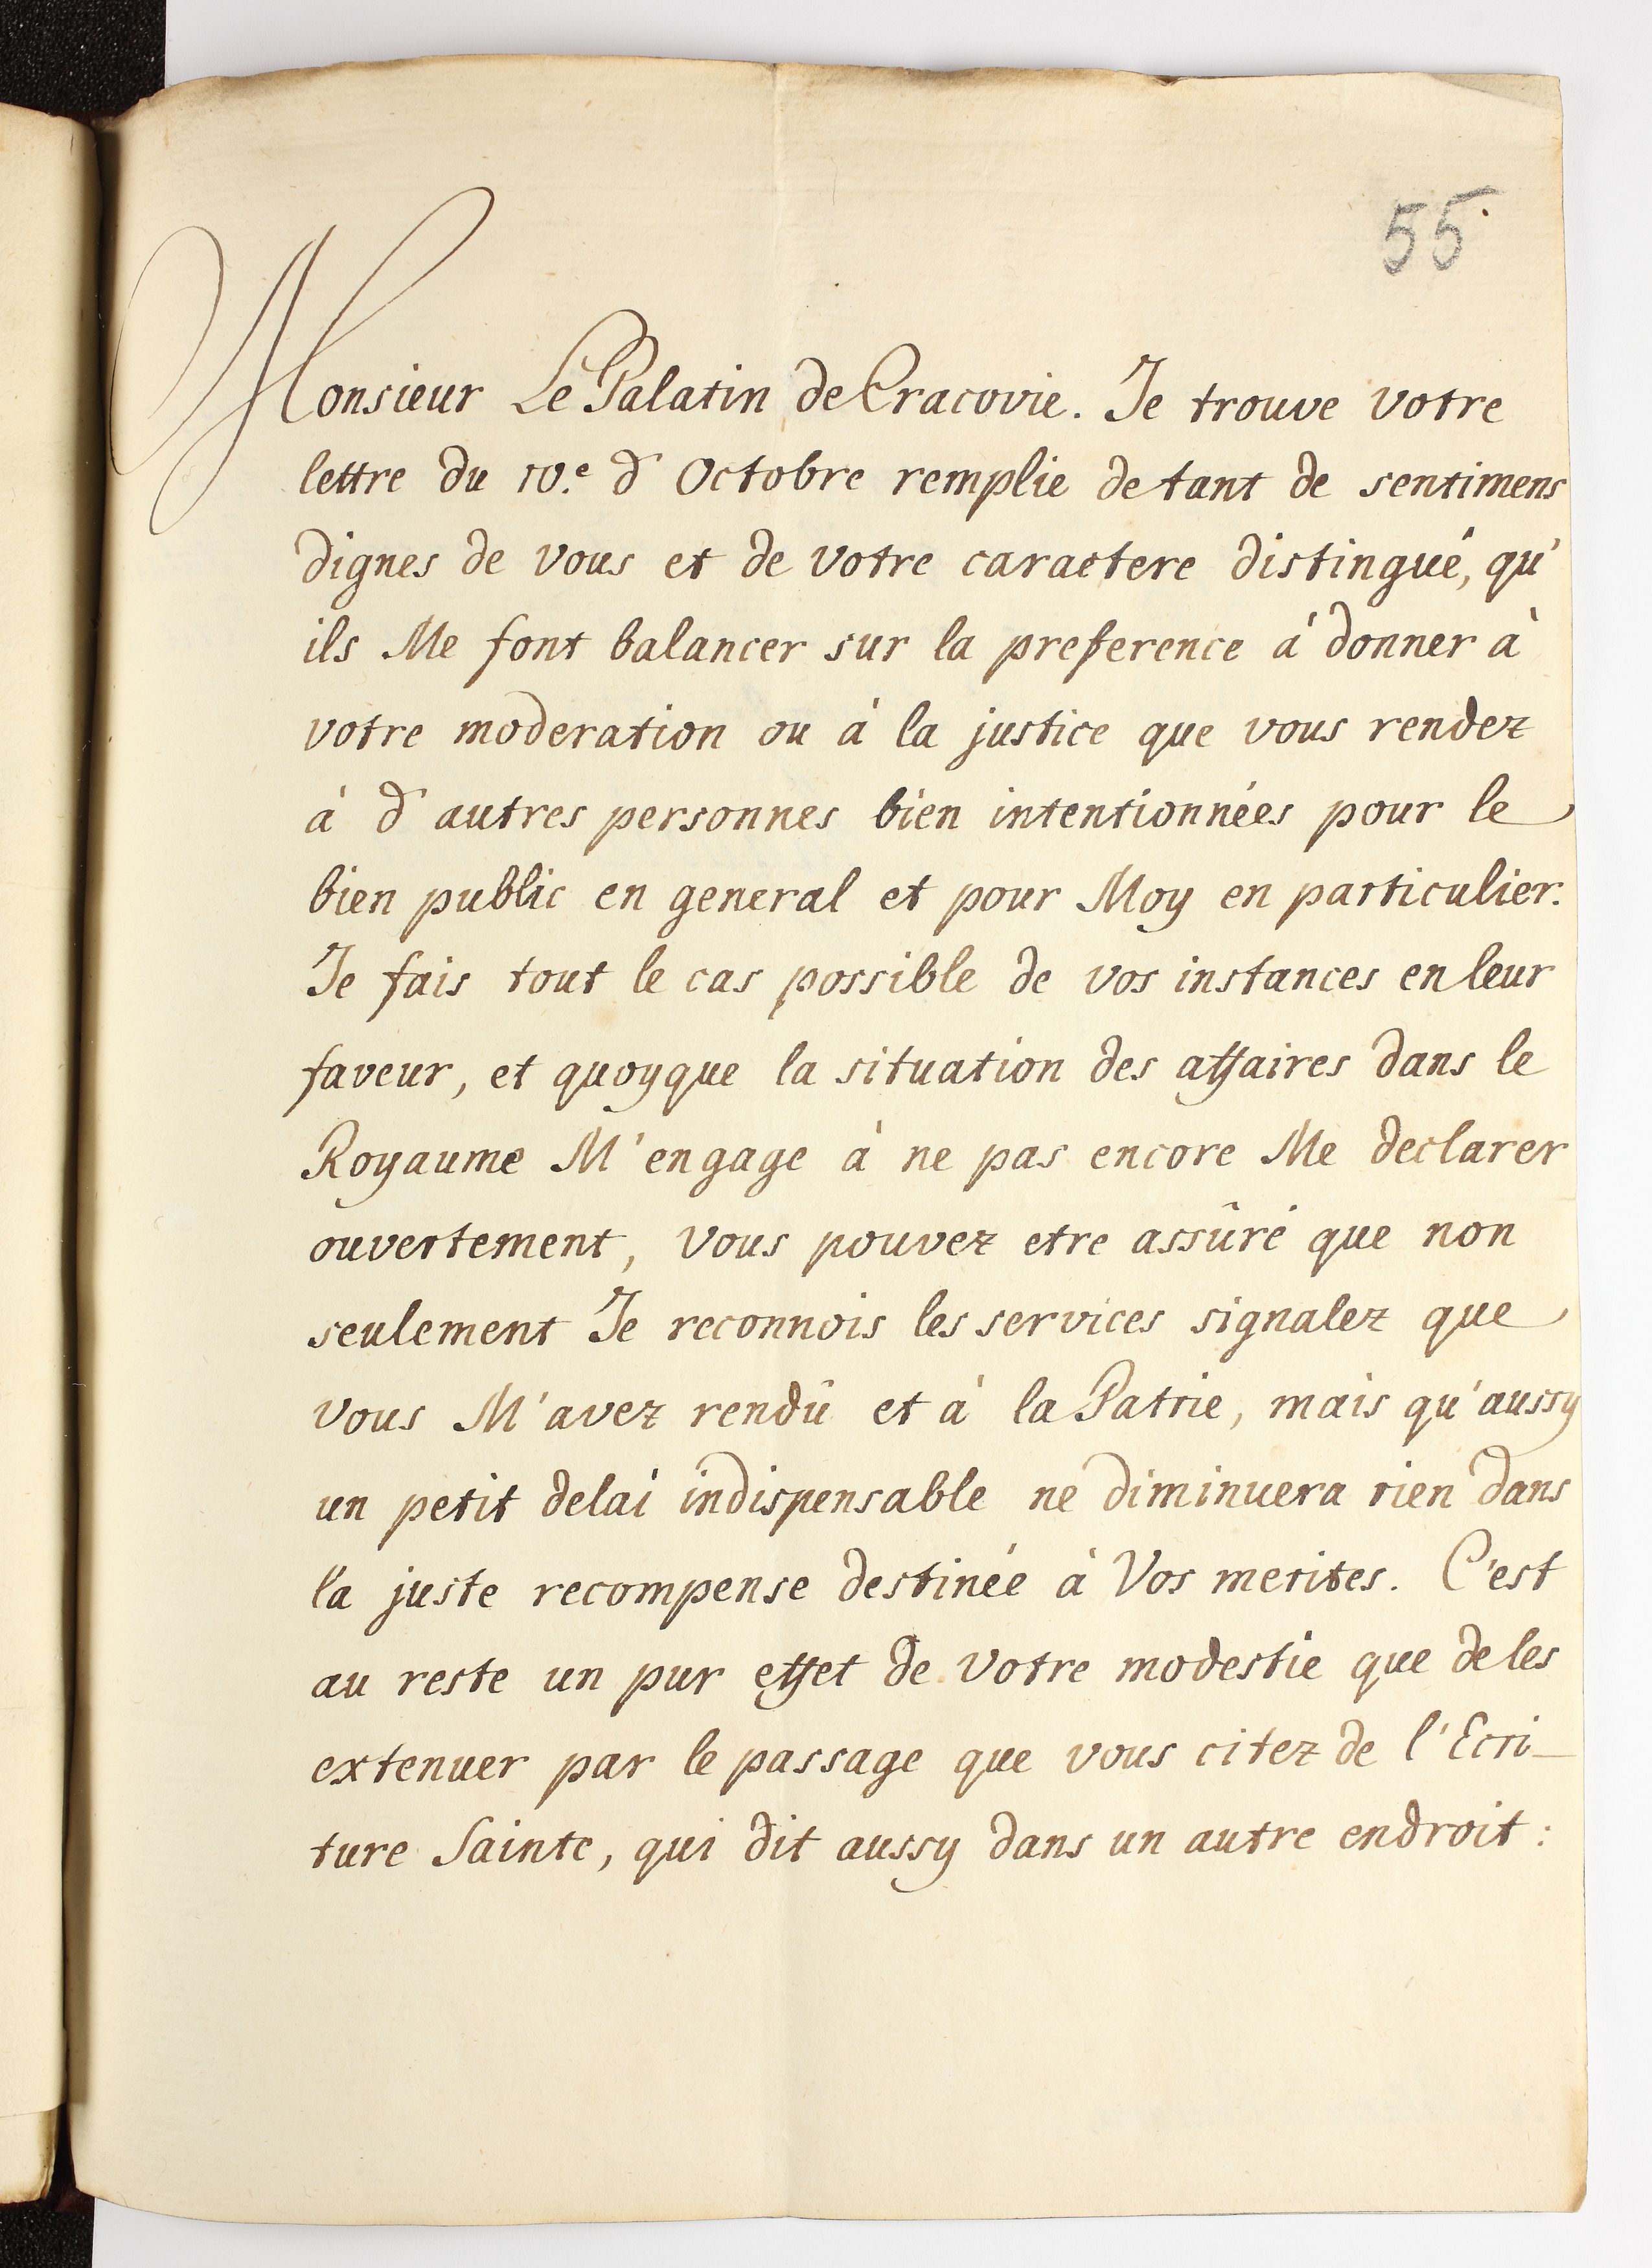 55
Monsieur Le Palatin de Cracovie. Je trouve votre
lettre du 10.e d'Octobre remplie de tant de sentimens
dignes de vous et de votre caractere distingué, qu'
ils Me font balancer sur la preference à donner à
votre moderation ou à la justice que vous rendez
à d'autres personnes bien intentionnées pour le
bien public en general et pour Moy en particulier.
Je fais tout le cas possible de vos instances en leur
faveur, et quoyque la situation des affaires dans le
Royaume M'engage à ne pas encore Me declarer
ouvertement, vous pouvez etre assûré que non
seulement Je reconnois les services signalez que
vous M'avez rendû et à la Patrie, mais qu'aussy
un petit delai indispensable ne diminuera rien dans
la juste recompense destinée à Vos merites. C'est
au reste un pur effet de votre modestie que de les
extenuer par le passage que vous citez de l'Ecri-
ture Sainte, qui dit aussy dans un autre endroit: